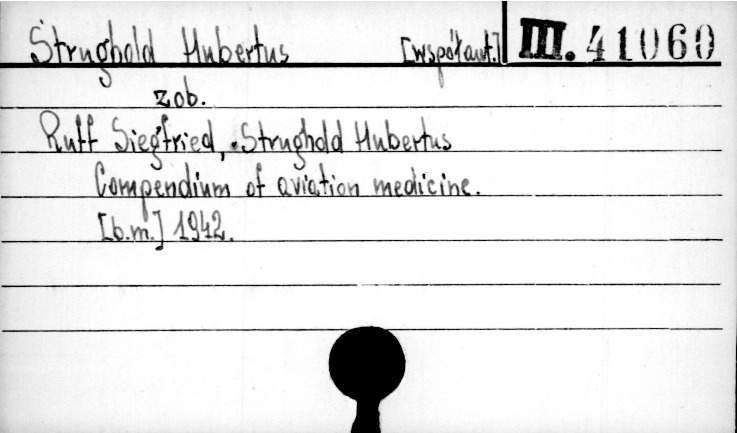 Strughold Hubertus [współaut.] III. 41060
zob.
Ruff Siegfried, Strughold Hubertus
Compendium of aviation medicine.
[b.m.] 1942.